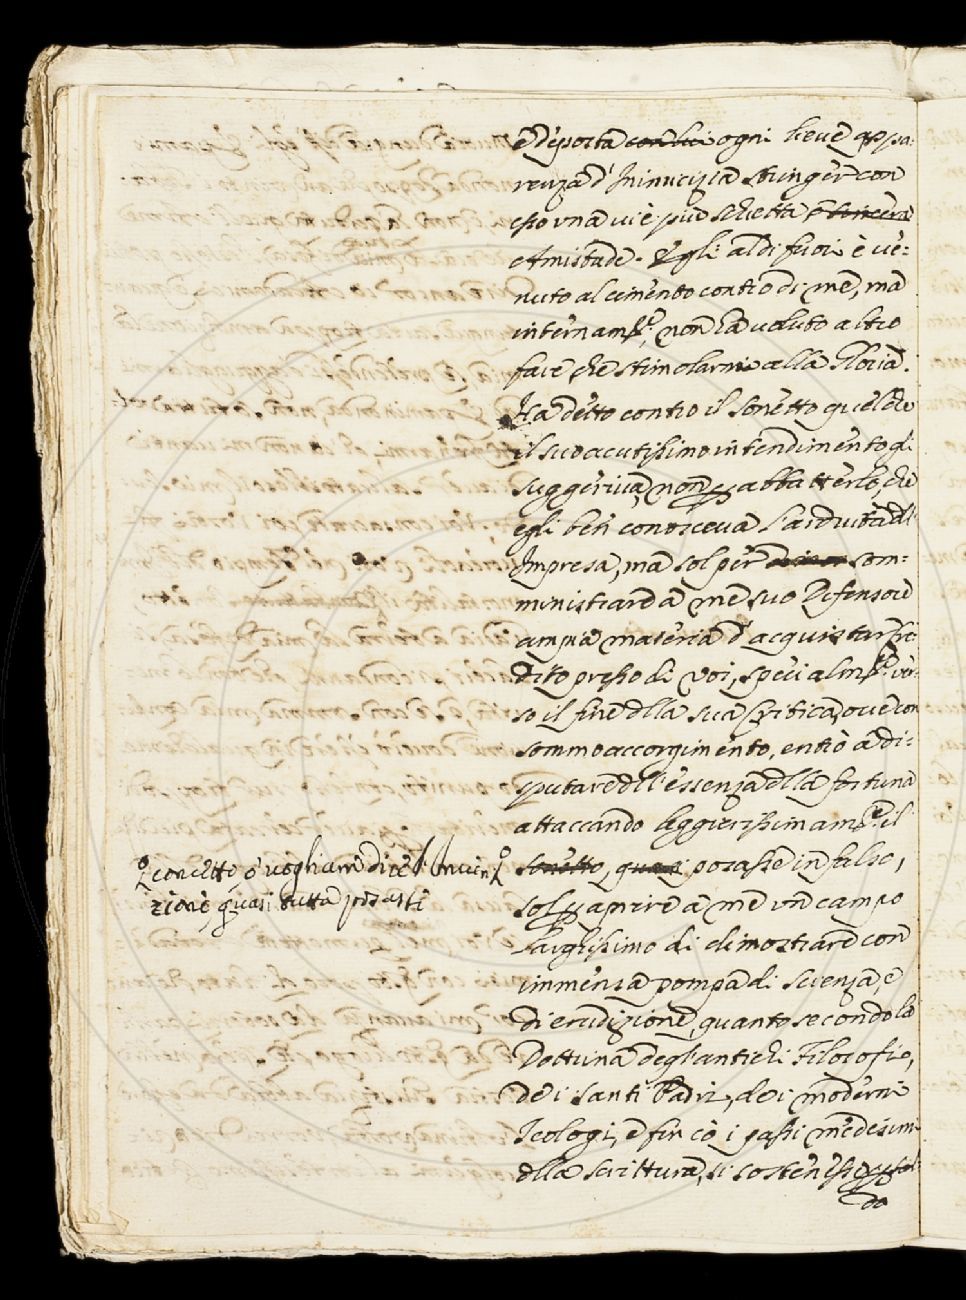 e deposta con lui ogni lieve appa-
renza d'Inimicizia stringer con
esso una vie più schietta e sincera
Amistade. Egli al di fuori è ve-
nuto al cimento contro di me, ma
internamte, non ha voluto altro
fare che stimolarmi alla Gloria.
Ha detto contro il Sonetto quel che
il suo acutissimo intendimento gli
suggeriva, non per abbatterlo, che
egli ben conosceva l'arduità dell'
Impresa, ma sol per som-
ministrare a me suo Difensore
ampia materia d'acquistar cre-
dito presso di voi, specialmte ver-
so il fine della sua Critica, ove con
sommo accorgimento, entrò a di-
sputare dell'essenza della fortuna
attaccando leggierissimamte il
concetto, o vogliam dire l'Inven-
zione, quasi tutta
Sonetto, quasi posasse in falso,
sol per aprire a me un campo
larghissimo di dimostrare con
immensa pompa di scienza, e
di erudizione, quanto secondo la
Dottrina degl'antichi Filosofi,
dei Santi Padri, dei moderni
Teologi, e fin co i passi medesimi
della Scrittura, si sostenesse